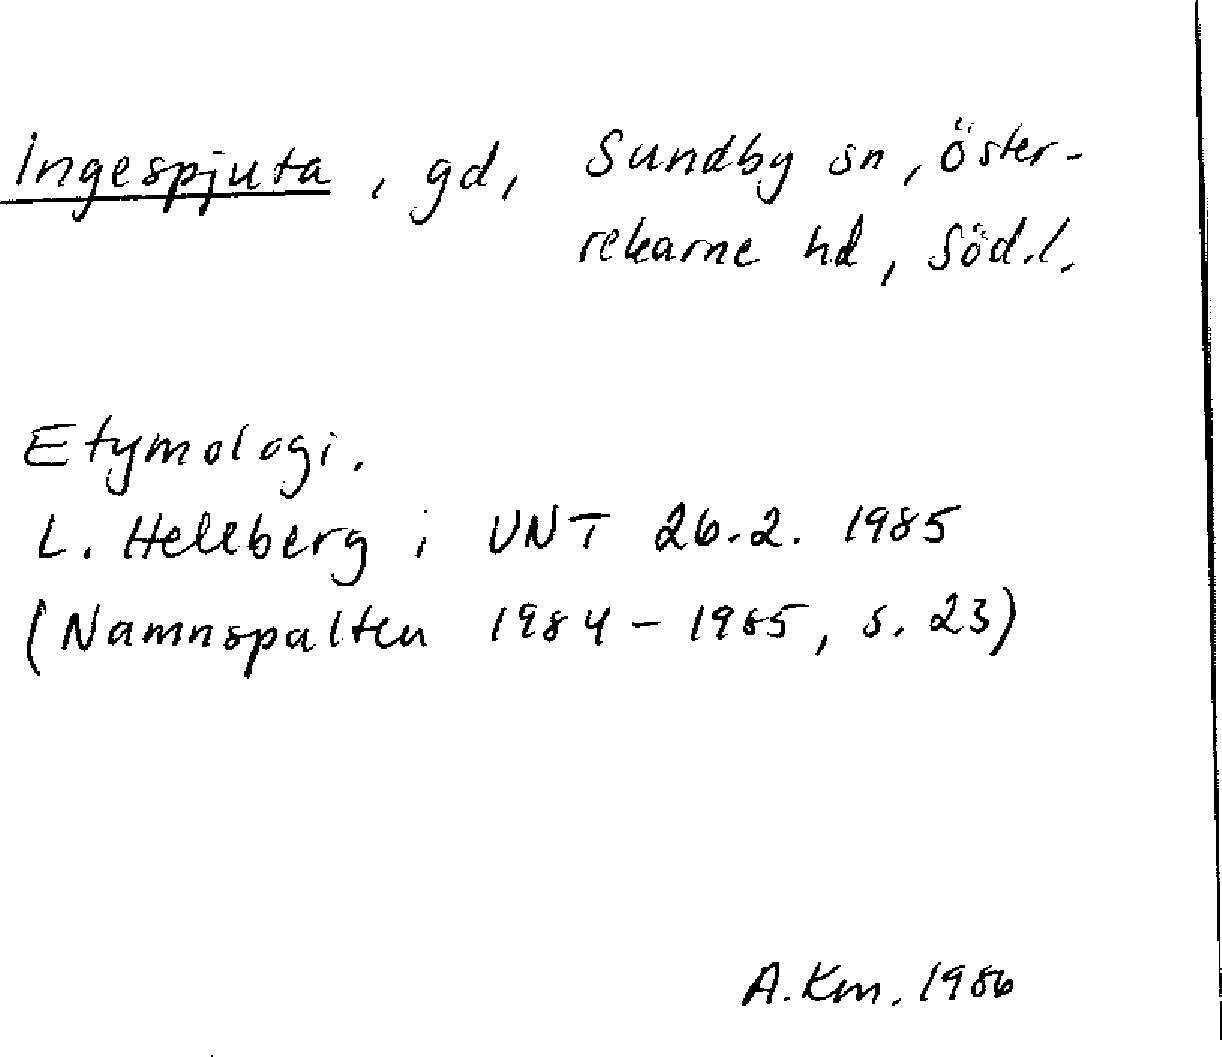 Ingespjuta, gd, Sundby sn, Öster-
rekarne hd, Söd.l.
Etymologi.
L. Hellberg i UNT 26.2. 1985
(Namnspalten 1984-1985, s. 23)
A.Km. 1986